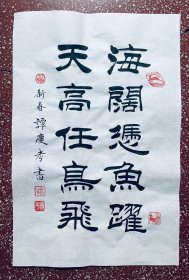 海闊憑魚躍
天高任鳥飛
新春 譚慶孝書